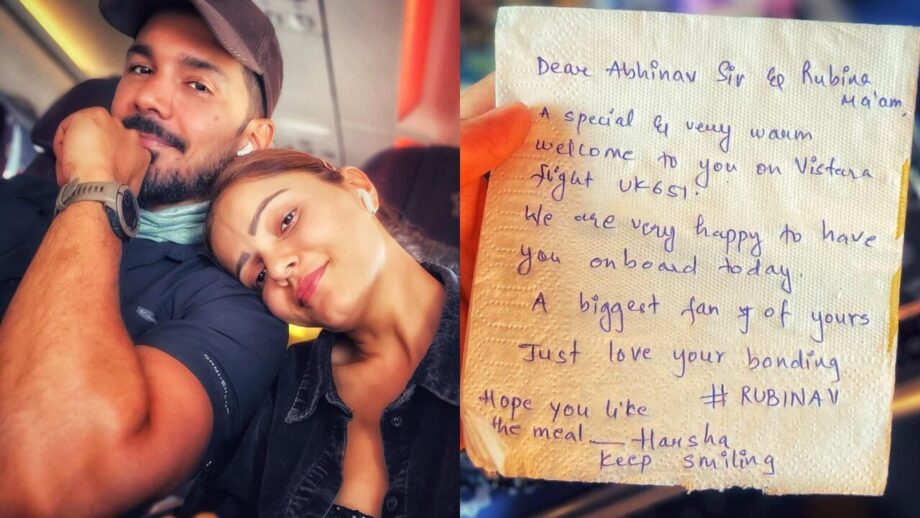 Dear Abhinav Sir & Rubina
Ma'am,
A special & very warm
welcome to you on Vistara
flight UK651.
We are very happy to have
you onboard today.
A biggest fan of yours
Just love your bonding
# RUBINAV
Hope you like
the meal — Harsha
Keep smiling